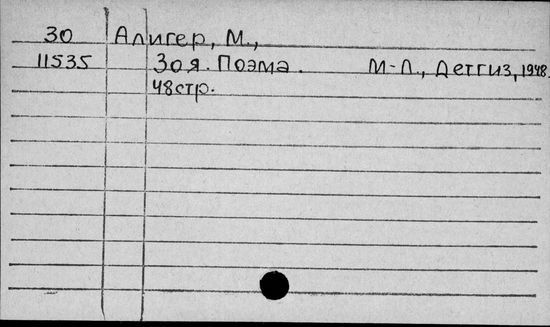 30 Алигер, М.,
11535 Зоя. Поэма. М-Л., Детгиз, 1948.
48стр.